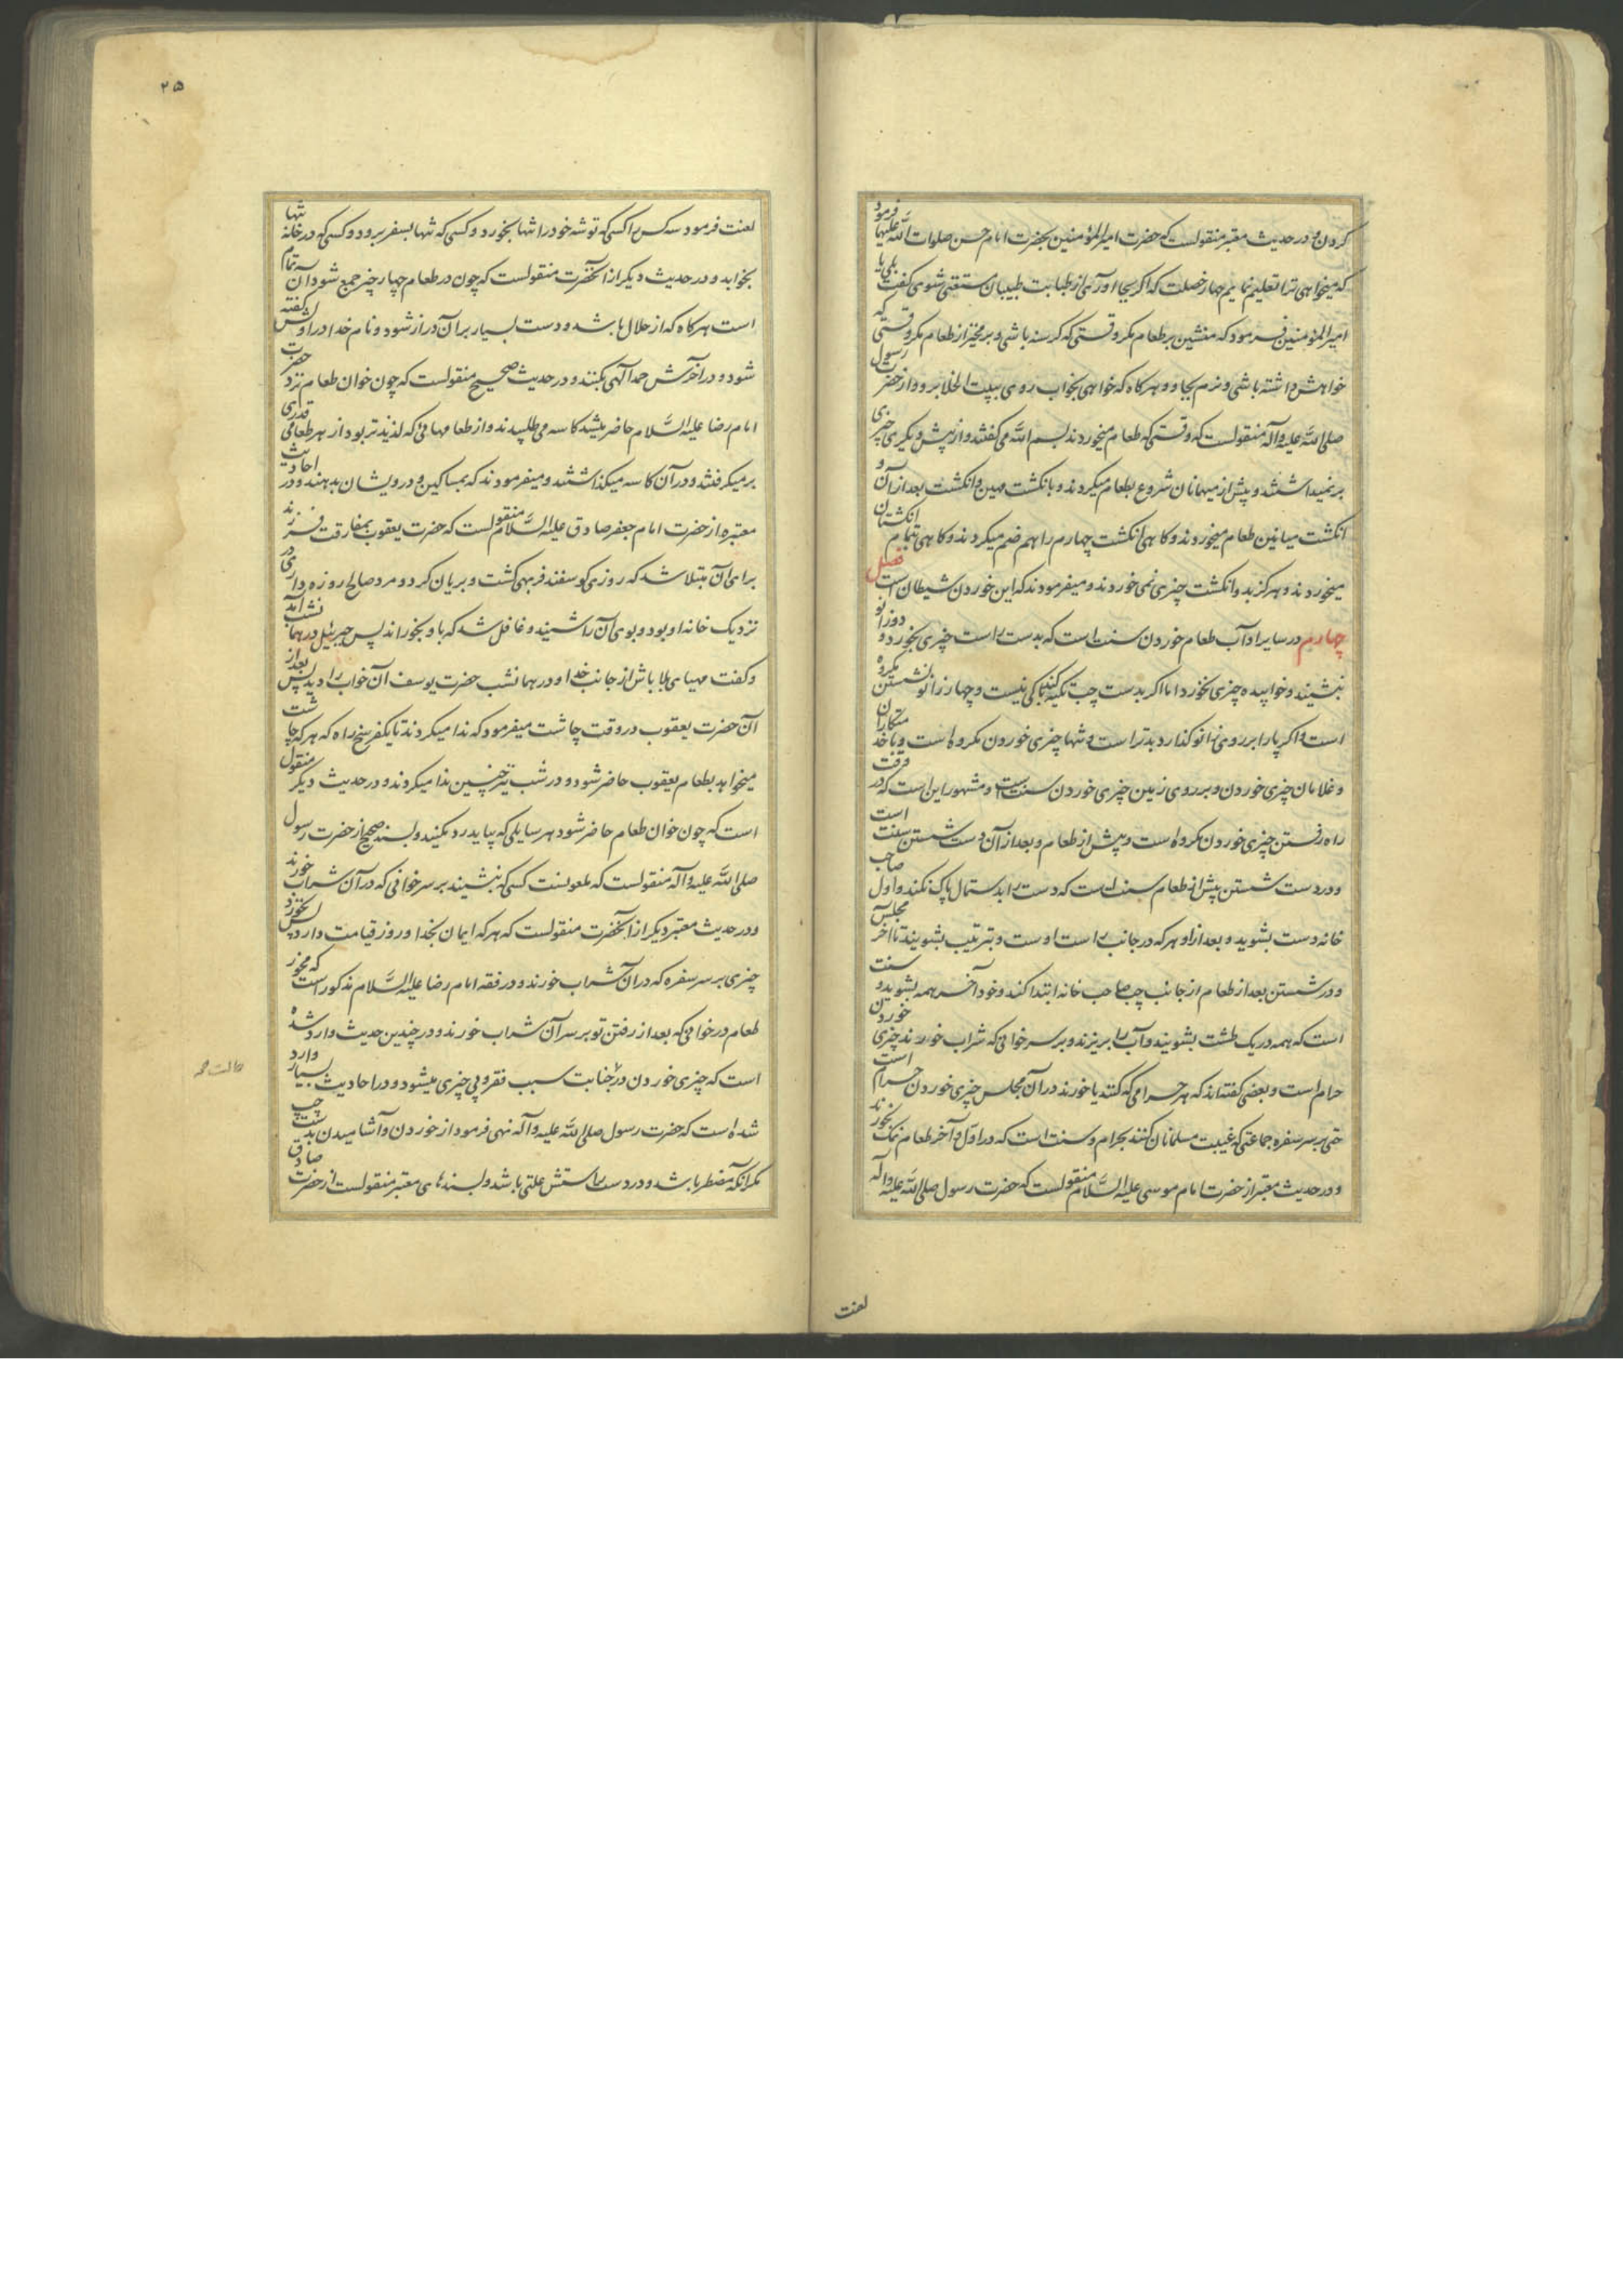 کردن و در حدیث معتبر منقولست که حضرت امیرالمؤمنین بحضرت امام حسن صلوات الله علیهما فرمود
که میخواهی ترا تعلیم نمایم چهار خصلت که اگر بجا آوری از طبابت طبیبان مستغنی شوی گفت بلی یا
امیرالمؤمنین فرمود که منشین بر طعام مگر وقتی که گرسنه باشی و برمخیز از طعام مگر وقتی که
خواهش داشته باشی و نرم بجاو و هرگاه که خواهی بخواب روی ببیت الخلا برو و از حضرت رسول
صلی الله علیه وآله منقولست که وقتی که طعام میخوردند بسم الله می گفتند و از پیش دیگری چیزی
برنمیداشتند و پیش از میهمانان شروع بطعام میکردند و بانگشت مهین و انگشت بعد از آن و
انگشت میانین طعام میخوردند و گاهی انگشت چهارم را هم ضم میکردند و گاهی بتمام انگشتان
میخوردند و هرگز بدو انگشت چیزی نمی خوردند و میفرمودند که این خوردن شیطان است فصل
چهارم در سایر آداب طعام خوردن سنت است که بدست راست چیزی بخورد و دوزانو
بنشیند و خوابیده چیزی نخورد اما اگر بدست چپ تکیه کند باکی نیست و چهار زانو نشستن مکروه
است و اگر پا را بر روی زانو گذارد بدتر است و تنها چیزی خوردن مکروه است و با خدمتکاران
و غلامان چیزی خوردن و بر روی زمین چیزی خوردن سنت است و مشهور این است که در وقت
راه رفتن چیزی خوردن مکروه است و پیش از طعام و بعد از آن دست شستن سنت است
و در دست شستن پیش از طعام سنت است که دست را بدستمال پاک نکند و اول صاحب
خانه دست بشوید و بعد از او هر که در جانب راست اوست و بترتیب بشویند تا آخر مجلس
و در شستن بعد از طعام از جانب چپ صاحب خانه ابتدا کند و خود آخر همه بشوید و سنت
است که همه در یک طشت بشویند و آب را بریزند و بر سر خوانی که شراب خورند چیزی خوردن
حرام است و بعضی گفته اند که هر حرامی که کنند یا خورند در آن مجلس چیزی خوردن حرام است
حتی بر سر سفره جماعتی که غیبت مسلمانان کنند بحرام و سنت است که در اول و آخر طعام نمک بخورند
و در حدیث معتبر از حضرت امام موسی علیه السّلام منقولست که حضرت رسول صلی الله علیه وآله
لعنت
۲۵
لعنت فرمود سه کس را کسی که توشه خود را تنها بخورد و کسی که تنها بسفر برود و کسی که در خانه تنها
بخوابد و در حدیث دیگر از آنحضرت منقولست که چون در طعام چهار چیز جمع شود آن تمام
است هرگاه که از حلال باشد و دست بسیار بر آن دراز شود و نام خدا در اولش گفته
شود و در آخرش حمد الهی بکنند و در حدیث صحیح منقولست که چون خوان طعام نزد حضرت
امام رضا علیه السّلام حاضر میشد کاسه می طلبیدند و از طعامهائی که لذیذتر بود از هر طعامی قدری
برمیگرفتند و در آن کاسه میگذاشتند و میفرمودند که بمساکین و درویشان بدهند و در احادیث
معتبره از حضرت امام جعفر صادق علیه السّلام منقولست که حضرت یعقوب بمفارقت فرزند
برای آن مبتلا شد که روزی گوسفند فربهی کشت و بریان کرد و مرد صالح روزه داری در
نزدیک خانه او بود و بوی آن را شنید و غافل شد که باو بخوراند پس جبرئیل در همانشب آمد
و گفت مهیای بلا باش از جانب خدا و در همانشب حضرت یوسف آن خواب را دید پس بعد از
آن حضرت یعقوب در وقت چاشت میفرمود که ندا میکردند تا یکفرسخ راه که هر که چاشت
میخواهد بطعام یعقوب حاضر شود و در شب نیز چنین ندا میکردند و در حدیث دیگر منقول
است که چون خوان طعام حاضر شود هر سایلی که بیاید رد مکنید و بسند صحیح از حضرت رسول
صلی الله علیه وآله منقولست که ملعونست کسی که بنشیند بر سر خوانی که در آن شراب خورند
و در حدیث معتبر دیگر از آنحضرت منقولست که هر که ایمان بخدا و روز قیامت دارد پس نخورد
چیزی بر سر سفره که در آن شراب خورند و در فقه امام رضا علیه السّلام مذکور است که مخور
طعام در خوانی که بعد از رفتن تو بر سر آن شراب خورند و در چندین حدیث وارد شده
است که چیزی خوردن در جنابت سبب فقر و بی چیزی میشود و در احادیث بسیار وارد
شده است که حضرت رسول صلی الله علیه وآله نهی فرمود از خوردن و آشامیدن بدست چپ
مگر آنکه مضطر باشد و در دست راستش علتی باشد و بسندهای معتبر منقولست از حضرت صادق
حالت